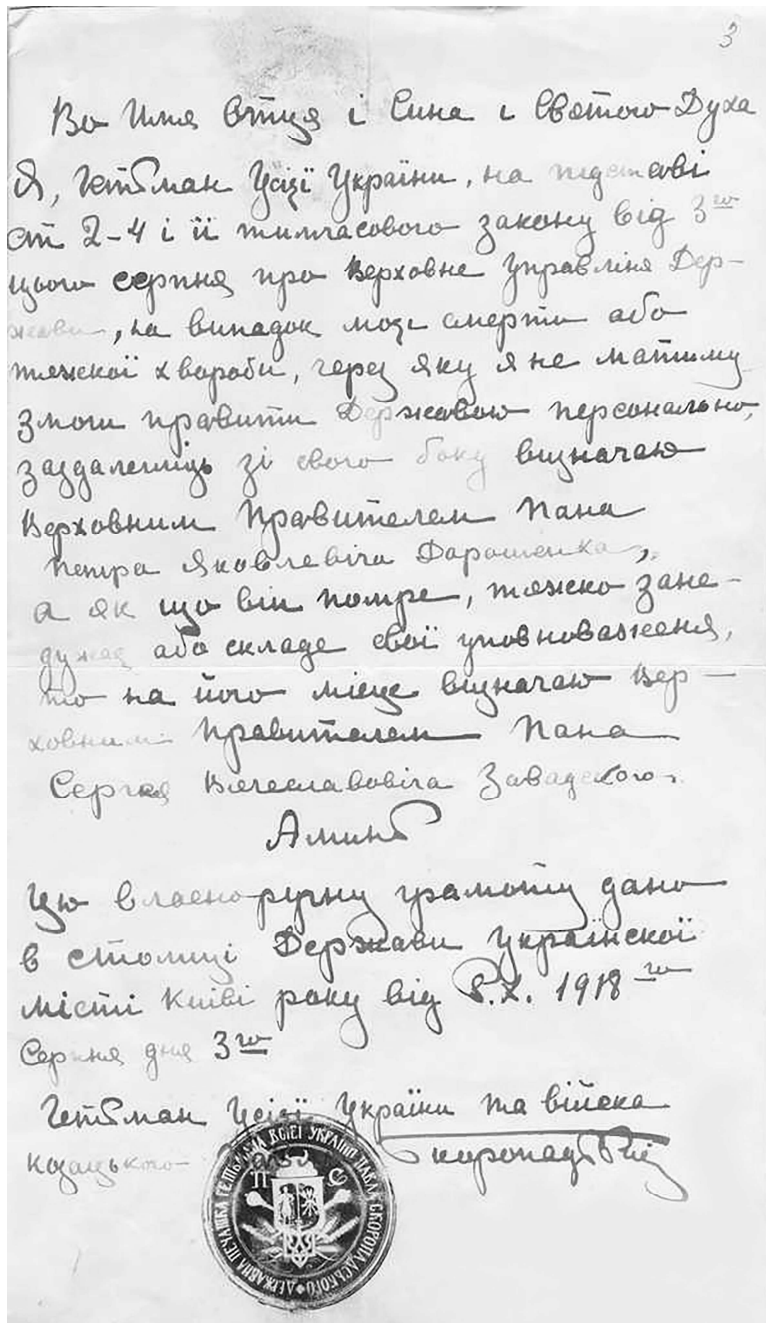 3
Во Имя Отця і Сина і Святого Духа
Я, Гетьман Усієї України, на підставі
ст 2-4 і її тимчасового закону від 3го
цього серпня про Верховне Управліня Дер-
жави, на випадок моєї смерти або
тяжкої хвороби, через яку я не матиму
змоги правити Державою персонально,
заздалегідь зі свого боку визначаю
Верховним Правителем Пана
Петра Яковлевіча Дорошенка,
а як що він помре, тяжко зане-
дужає або складе свої уповноваженя,
то на його місце визначаю Вер-
ховним Правителем Пана
Сергія Вячеславовіча Завадского.
Аминь
Цю власноручну грамоту дано
в столиці Держави Української
місті Київі року від Р.Х. 1918 го
Серпня дня 3го
Гетьман Усієї України та війска
козацького Павло Скоропадський
П С
ДЕРЖАВНА ПЕЧАТКА ГЕТЬМАНА ВСІЄЇ УКРАЇНИ ПАВЛА СКОРОПАДСЬКОГО